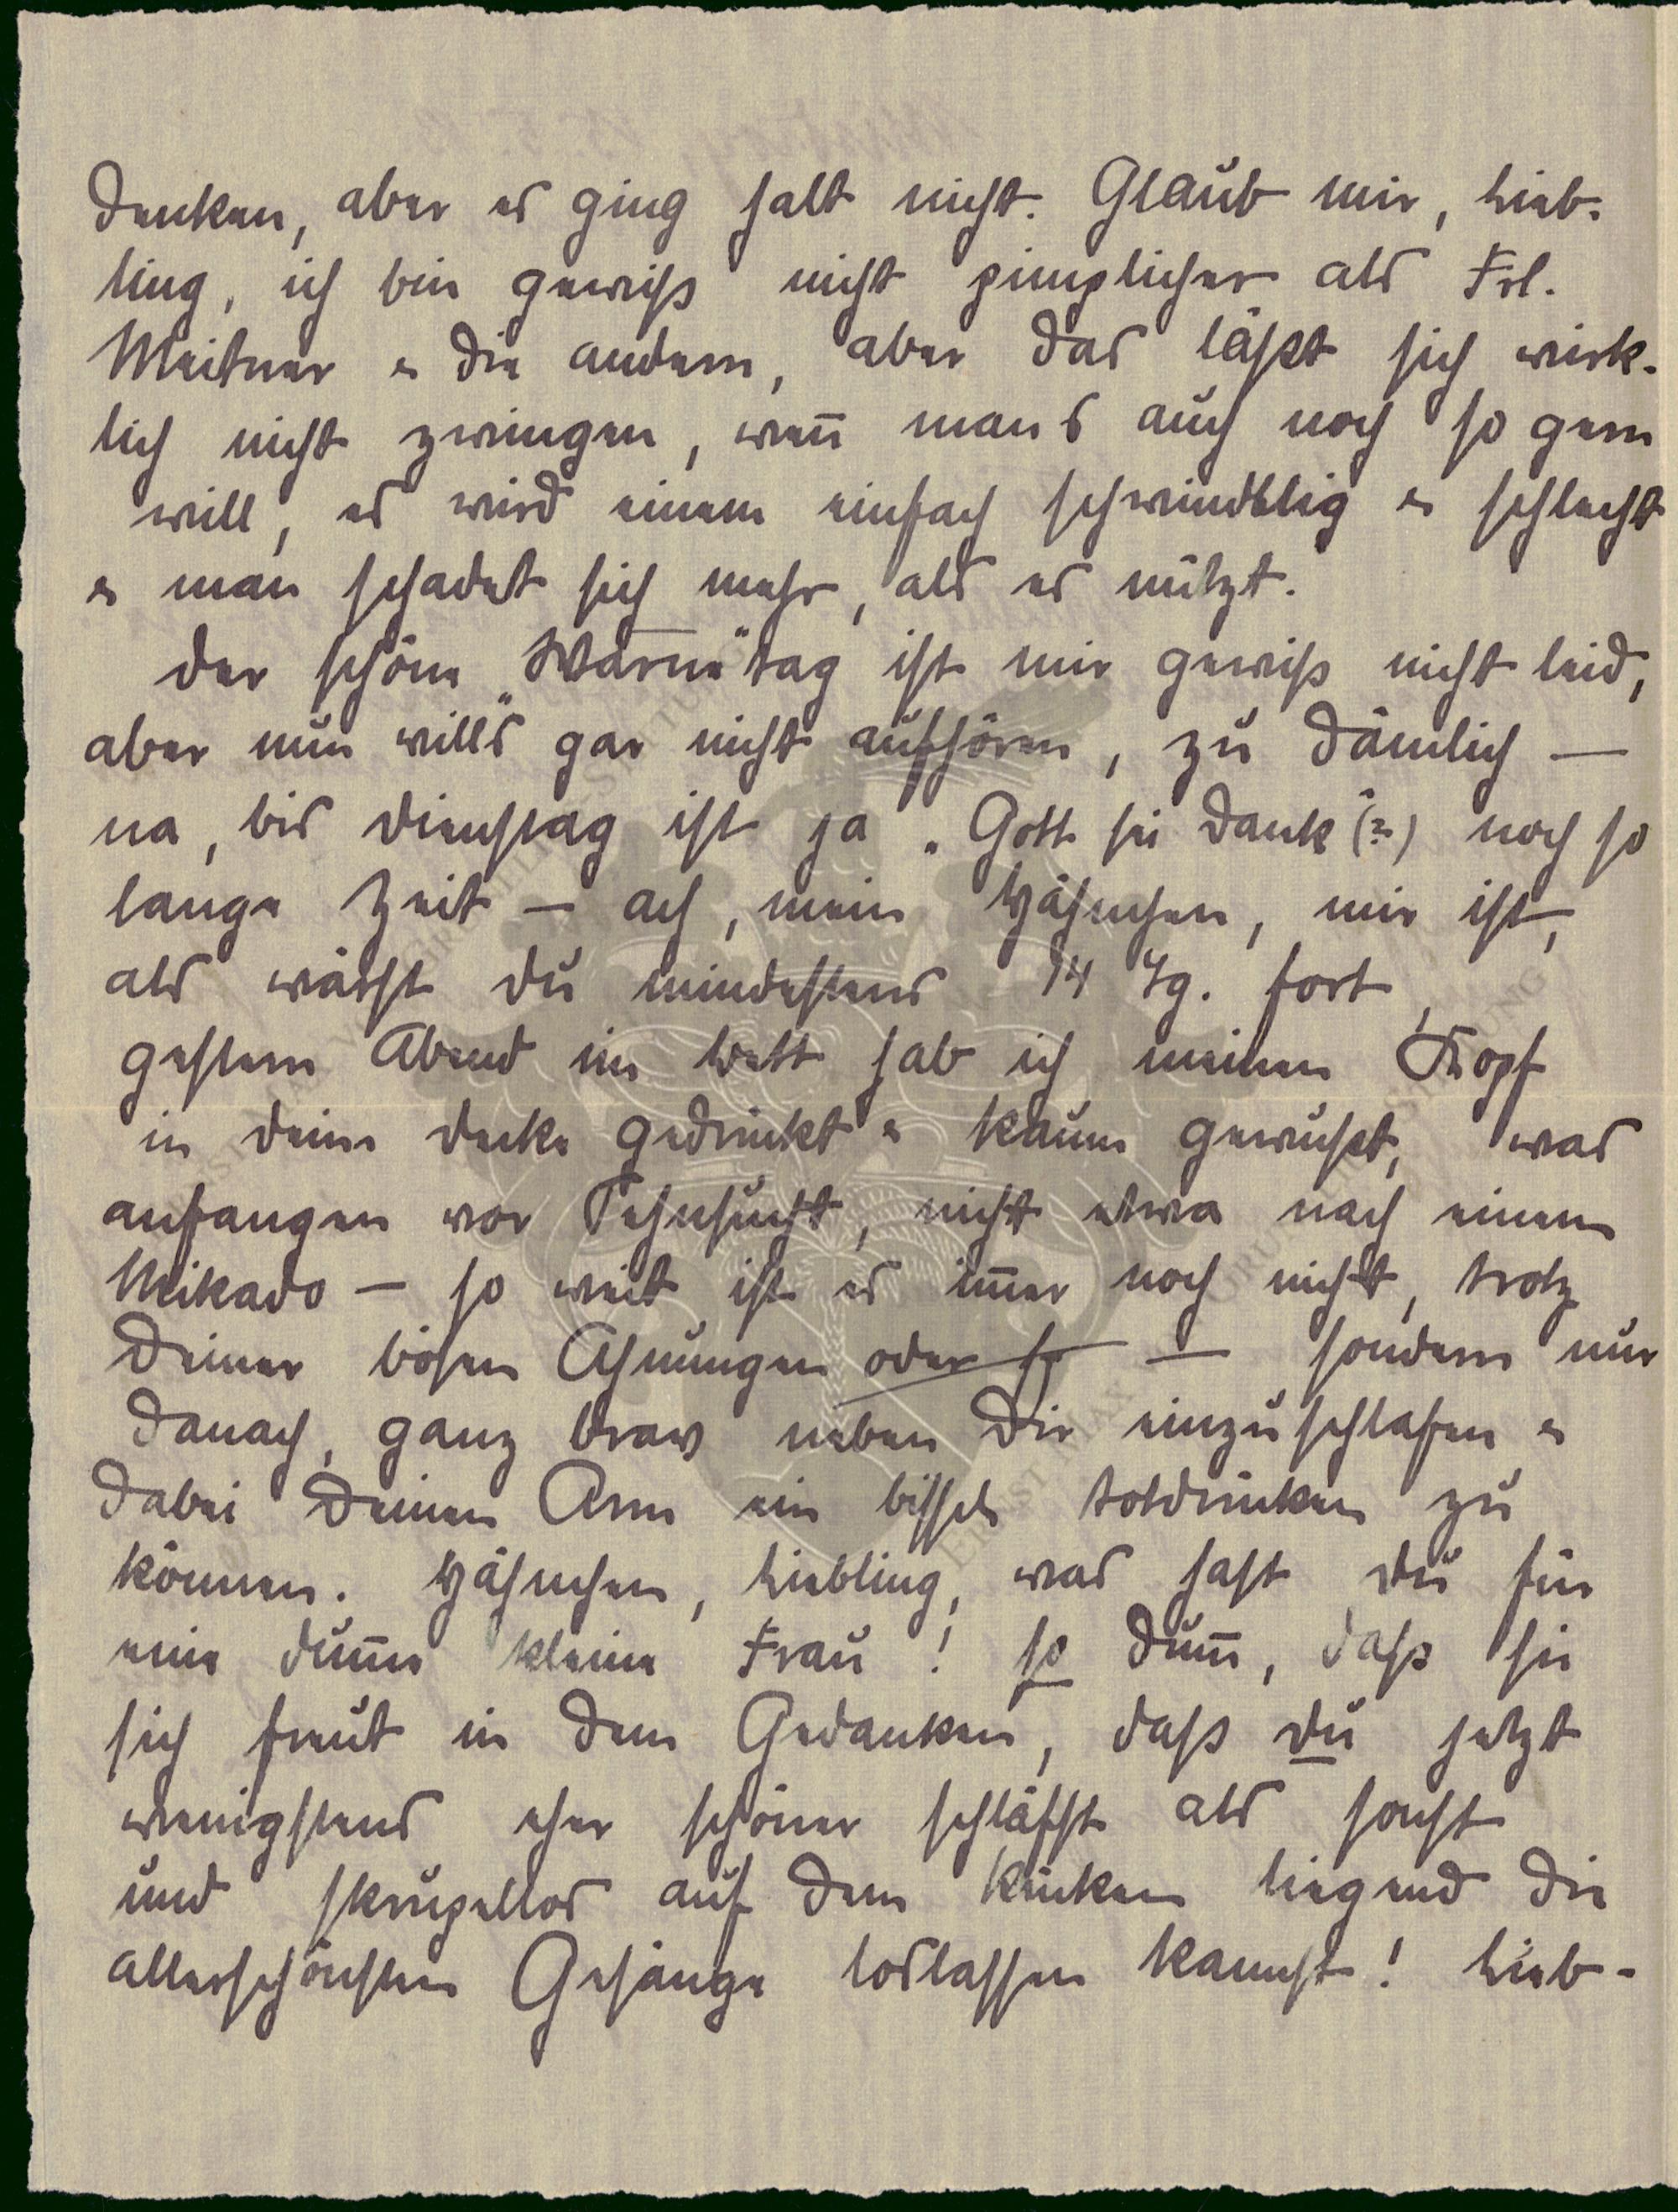 denken, aber es ging halt nicht. Glaub mir, Lieb-
ling, ich bin gewiß nicht zimplicher als Frl.
Meitner u die andern, aber das läßt sich wirk-
lich nicht zwingen, weñ mans auch noch so gern
will, es wird einem einfach schwindlig u schlecht
u man schadet sich mehr, als es nützt.
Der schöne „Warne"tag ist mir gewiß nicht leid,
aber nun will's gar nicht aufhören, zu dämlich —
na, bis Dienstag ist ja „Gott sei Dank"(?) noch so
lange Zeit — ach, mein Hähnchen, mir ist,
als wärst Du mindestens 14 Tg. fort,
gestern Abend im Bett hab ich meinen Kopf
in Deine Decke gedrückt u kaum gewußt, was
anfangen vor Sehnsucht, nicht etwa nach einem
Mikado — so weit ist es im̄er noch nicht, trotz
Deiner bösen Ahnungen oder so — sondern nur
danach, ganz brav neben Dir einzuschlafen u
dabei Deinen Arm ein bissel totdrücken zu
können. Hähnchen, Liebling, was hast Du für
eine dum̄e kleine Frau! so dum̄, daß sie
sich freut in dem Gedanken, daß Du jetzt
wenigstens eher schöner schläfst als sonst
und skrupellos auf dem Rücken liegend die
allerschönsten Gesänge loslassen kannst! Lieb-